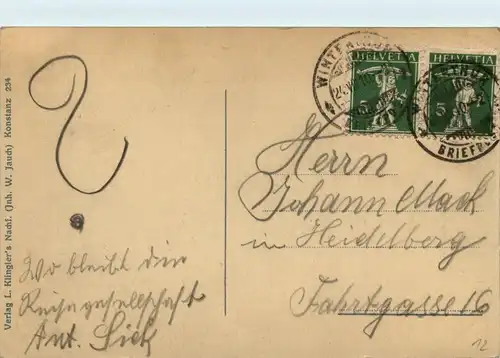 Verlag L. Klingler's Nachf. (Inh. W. Jauch) Konstanz 234
?
Wo bleibt die
Reisegesellschaft
Ant.
WINTERTHUR
BRIEFP
HELVETIA
5
HELVETIA
5
Herrn
Johann Mack
in Heidelberg
Fahrtgasse 16
12